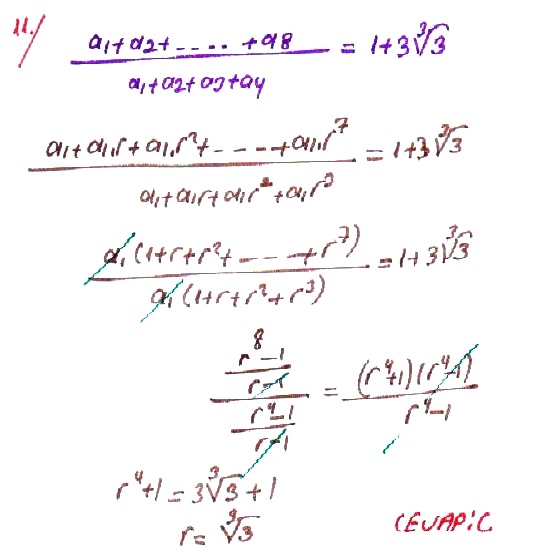 11./
a₁+a₂+.....+a8 / a₁+a₂+a₃+a₄ = 1+3∛3
a₁+a₁.r+a₁.r²+----+a₁.r⁷ / a₁+a₁r+a₁r²+a₁r³ = 1+3∛3
a₁(1+r+r²+----+r⁷) / a₁(1+r+r²+r³) = 1+3∛3
((r⁸-1)/(r-1)) / ((r⁴-1)/(r-1)) = (r⁴+1)(r⁴-1) / r⁴-1
r⁴+1=3∛3+1
r=∛3
CEVAP:C